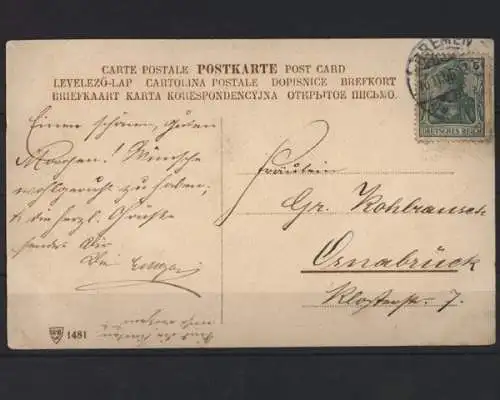 CARTE POSTALE POSTKARTE POST CARD
LEVELEZŐ-LAP CARTOLINA POSTALE DOPISNICE BREFKORT
BRIEFKAART KARTA KORESPONDENCYJNA ОТКРЫТОЕ ПИСЬМО.
BREMEN
DEUTSCHES REICH
Einen schönen, guten
Morgen! Wünsche
wohlgeruht zu haben,
die herzl. Grüsse
sendet Dir
Fräulein
Gr. Kohlrausch
Osnabrück
Klosterstr. 7.
1481